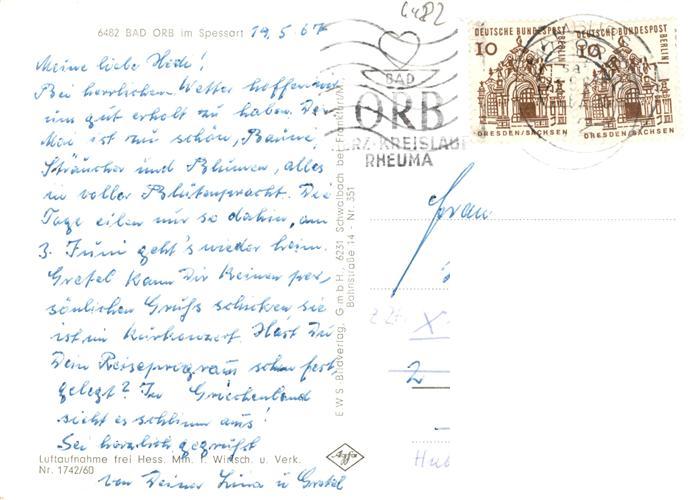 6482 BAD ORB im Spessart 19.5.67
Meine liebe Hede!
Bei herrlichem Wetter hoffen wir
uns gut erholt zu haben. Der
Mai ist zu schön, Bäume,
Sträucher und Blumen, alles
in voller Blütenpracht. Die
Tage eilen nur so dahin, am
3. Juni geht's wieder heim.
Gretel kann Dir keinen per-
sönlichen Gruß schicken, sie
ist im Kurkonzert. Hast Du
Dein Reiseprogram schon fest-
gelegt? In Griechenland
sieht es schlimm aus!
Sei herzlich gegrüßt
von Deiner Lina u Gretel
Luftaufnahme frei Hess. Min. f. Wirtsch. u. Verk.
Nr. 1742/60
EWS-Bildverlag, GmbH, 6231 Schwalbach bei Frankfurt/M.
Bahnstraße 14 - Nr. 351
Agfa
6482
BAD
ORB
HERZ-KREISLAUF
RHEUMA
DEUTSCHE BUNDESPOST
BERLIN
10
DRESDEN/SACHSEN
DEUTSCHE BUNDESPOST
BERLIN
10
DRESDEN/SACHSEN
Frau
X
2